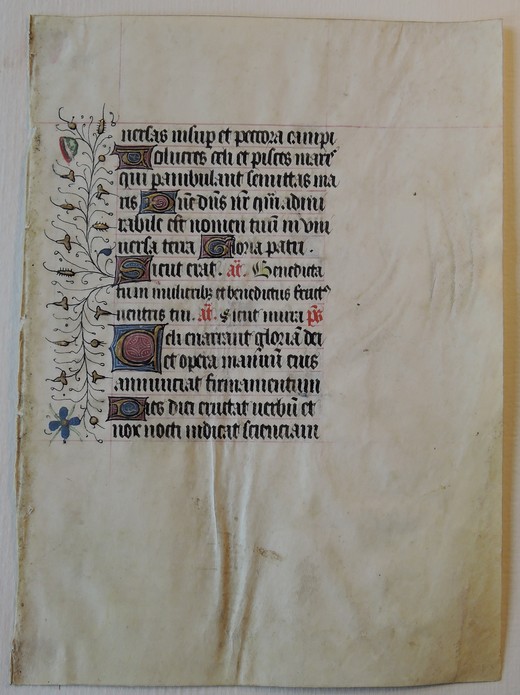 uersas insup et peccora campi
Uolucres celi et pisces maris
qui pambulant semittas ma
ris Dñe dñs nr̃ quã admi
rabile est nomen tuũ in vni
uersa terra Gloria patri .
Sicut erat . añ. Benedicta
tu in mulieribz et benedictus fructꝰ
uentris tui . añ. Sicut mirra ps̃
Celi enarrant gloriã dei
et opera manuũ eius
annunciat firmamentum
Dies diei eructat uerbũ et
nox nocti indicat scienciam